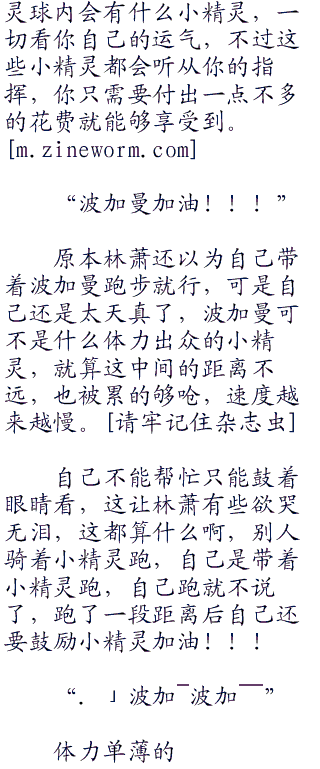 灵球内会有什么小精灵，一
切看你自己的运气，不过这
些小精灵都会听从你的指
挥，你只需要付出一点不多
的花费就能够享受到。
[m.zineworm.com]
“波加曼加油！！！”
原本林萧还以为自己带
着波加曼跑步就行，可是自
己还是太天真了，波加曼可
不是什么体力出众的小精
灵，就算这中间的距离不
远，也被累的够呛，速度越
来越慢。[请牢记住杂志虫]
自己不能帮忙只能鼓着
眼睛看，这让林萧有些欲哭
无泪，这都算什么啊，别人
骑着小精灵跑，自己是带着
小精灵跑，自己跑就不说
了，跑了一段距离后自己还
要鼓励小精灵加油！！！
“．」波加¯波加¯¯”
体力单薄的